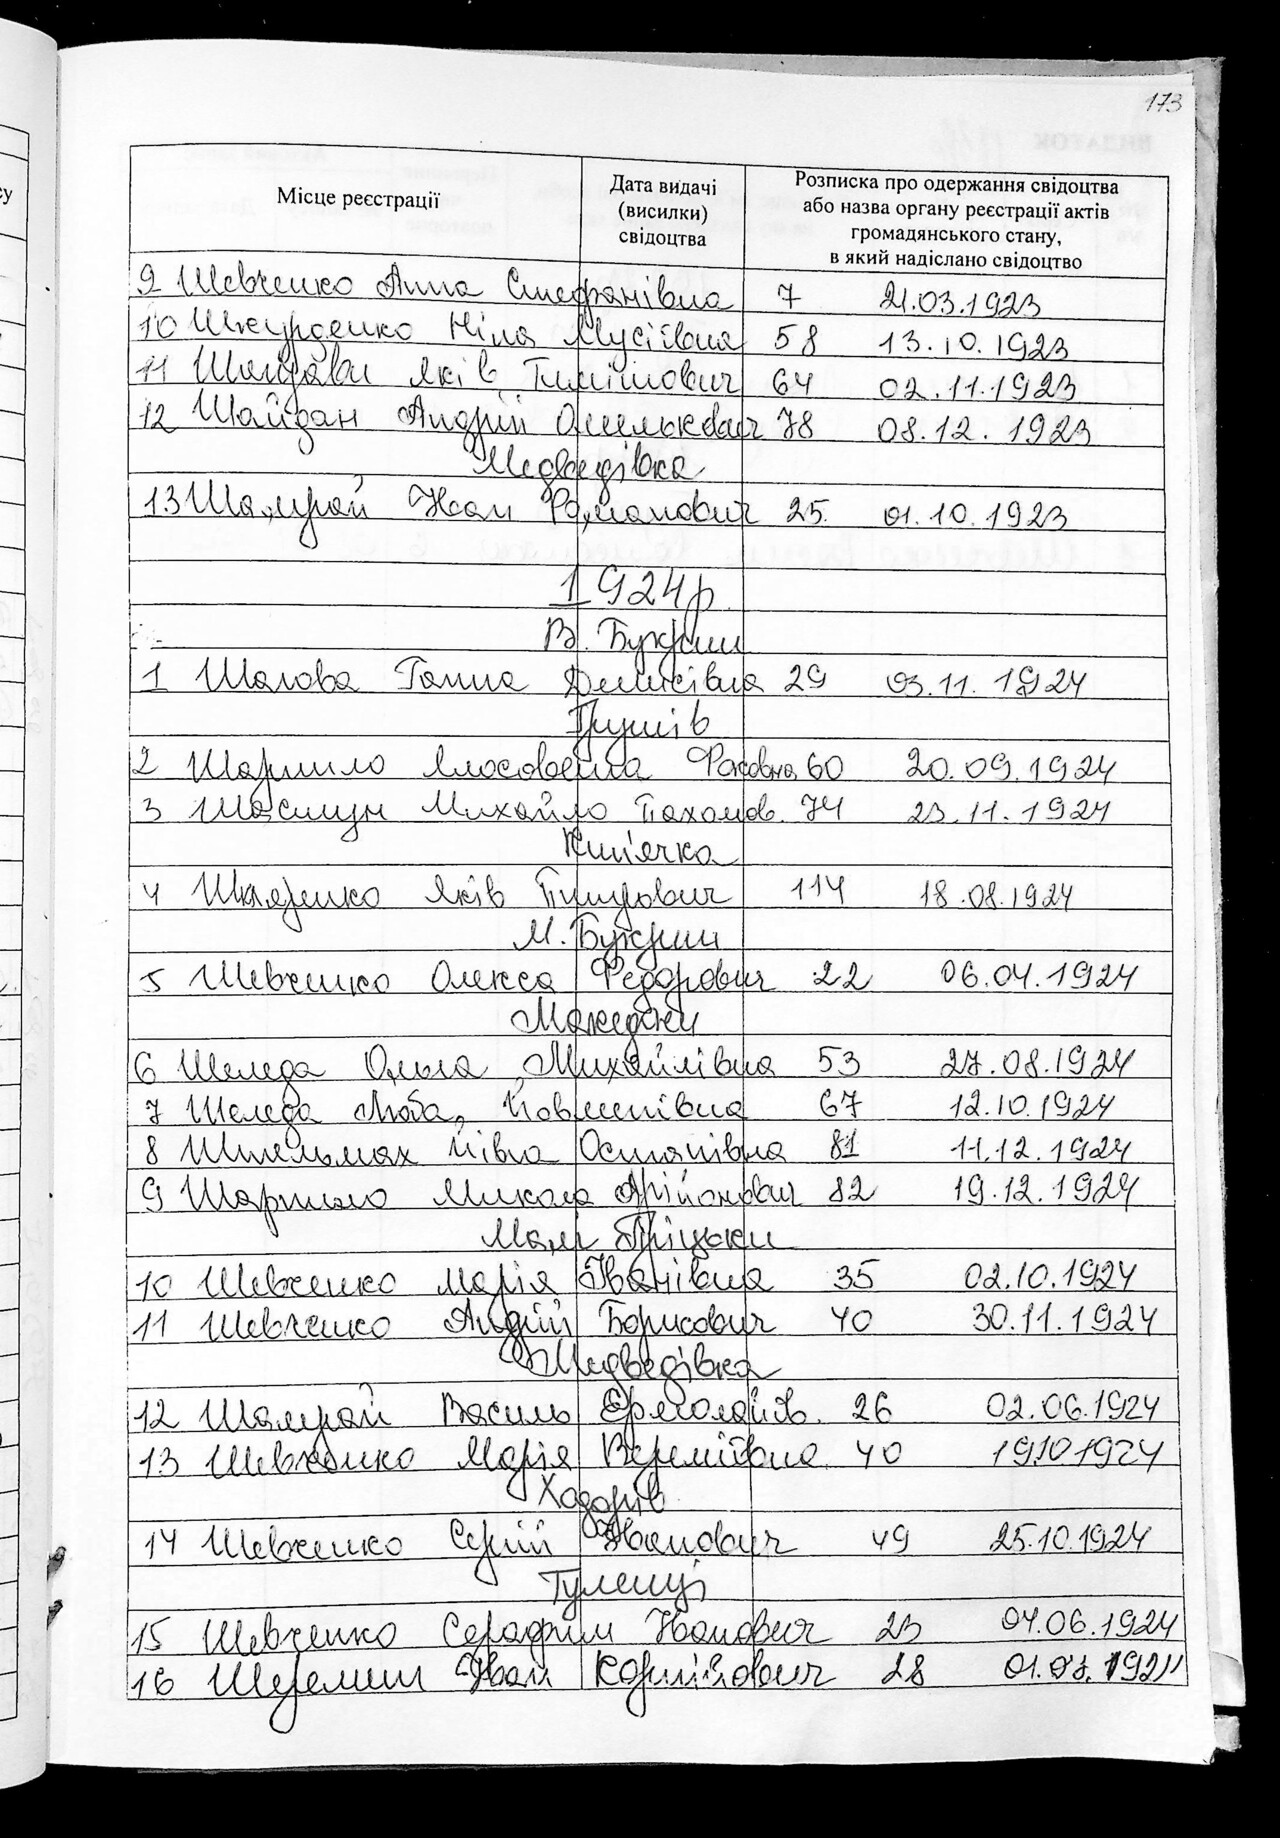 173
Місце реєстрації
Дата видачі
(висилки)
свідоцтва
Розписка про одержання свідоцтва
або назва органу реєстрації актів
громадянського стану,
в який надіслано свідоцтво
9 Шевченко Анна Стефанівна 7 21.03.1923
10 Шкурденко Ніла Мусіївна 58 13.10.1923
11 Яків 64 02.11.1923
12 Шайдан Андрій Омелькович 78 08.12.1923
Медведівка
13 Шамрай Іван Романович 25 01.10.1923
1924р
В. Букрин
1 Шалова Ганна Денисівна 29 03.11.1924
Грушів
2 Шаршило 60 20.09.1924
3 Михайло Пахомов. 74 23.11.1924
Кип'ячка
4 Яків 114 18.08.1924
М. Букрин
5 Шевченко Олекса Федорович 22 06.04.1924
Македони
6 Шеледа Ольга Михайлівна 53 27.08.1924
7 Шеледа Люба 67 12.10.1924
8 Штельмах Остапівна 81 11.12.1924
9 Шаршило Микола 82 19.12.1924
Малі Пріцьки
10 Шевченко Марія Іванівна 35 02.10.1924
11 Шевченко Андрій Борисович 40 30.11.1924
Медведівка
12 Шамрай Василь Ермолайов. 26 02.06.1924
13 Шевченко Марія Веремiївна 40 19.10 1924
Ходорів
14 Шевченко Сергій Іванович 49 25.10.1924
Тулинці
15 Шевченко Серафим Іванович 23 04.06.1924
16 Шеремет Іван Корнійович 28